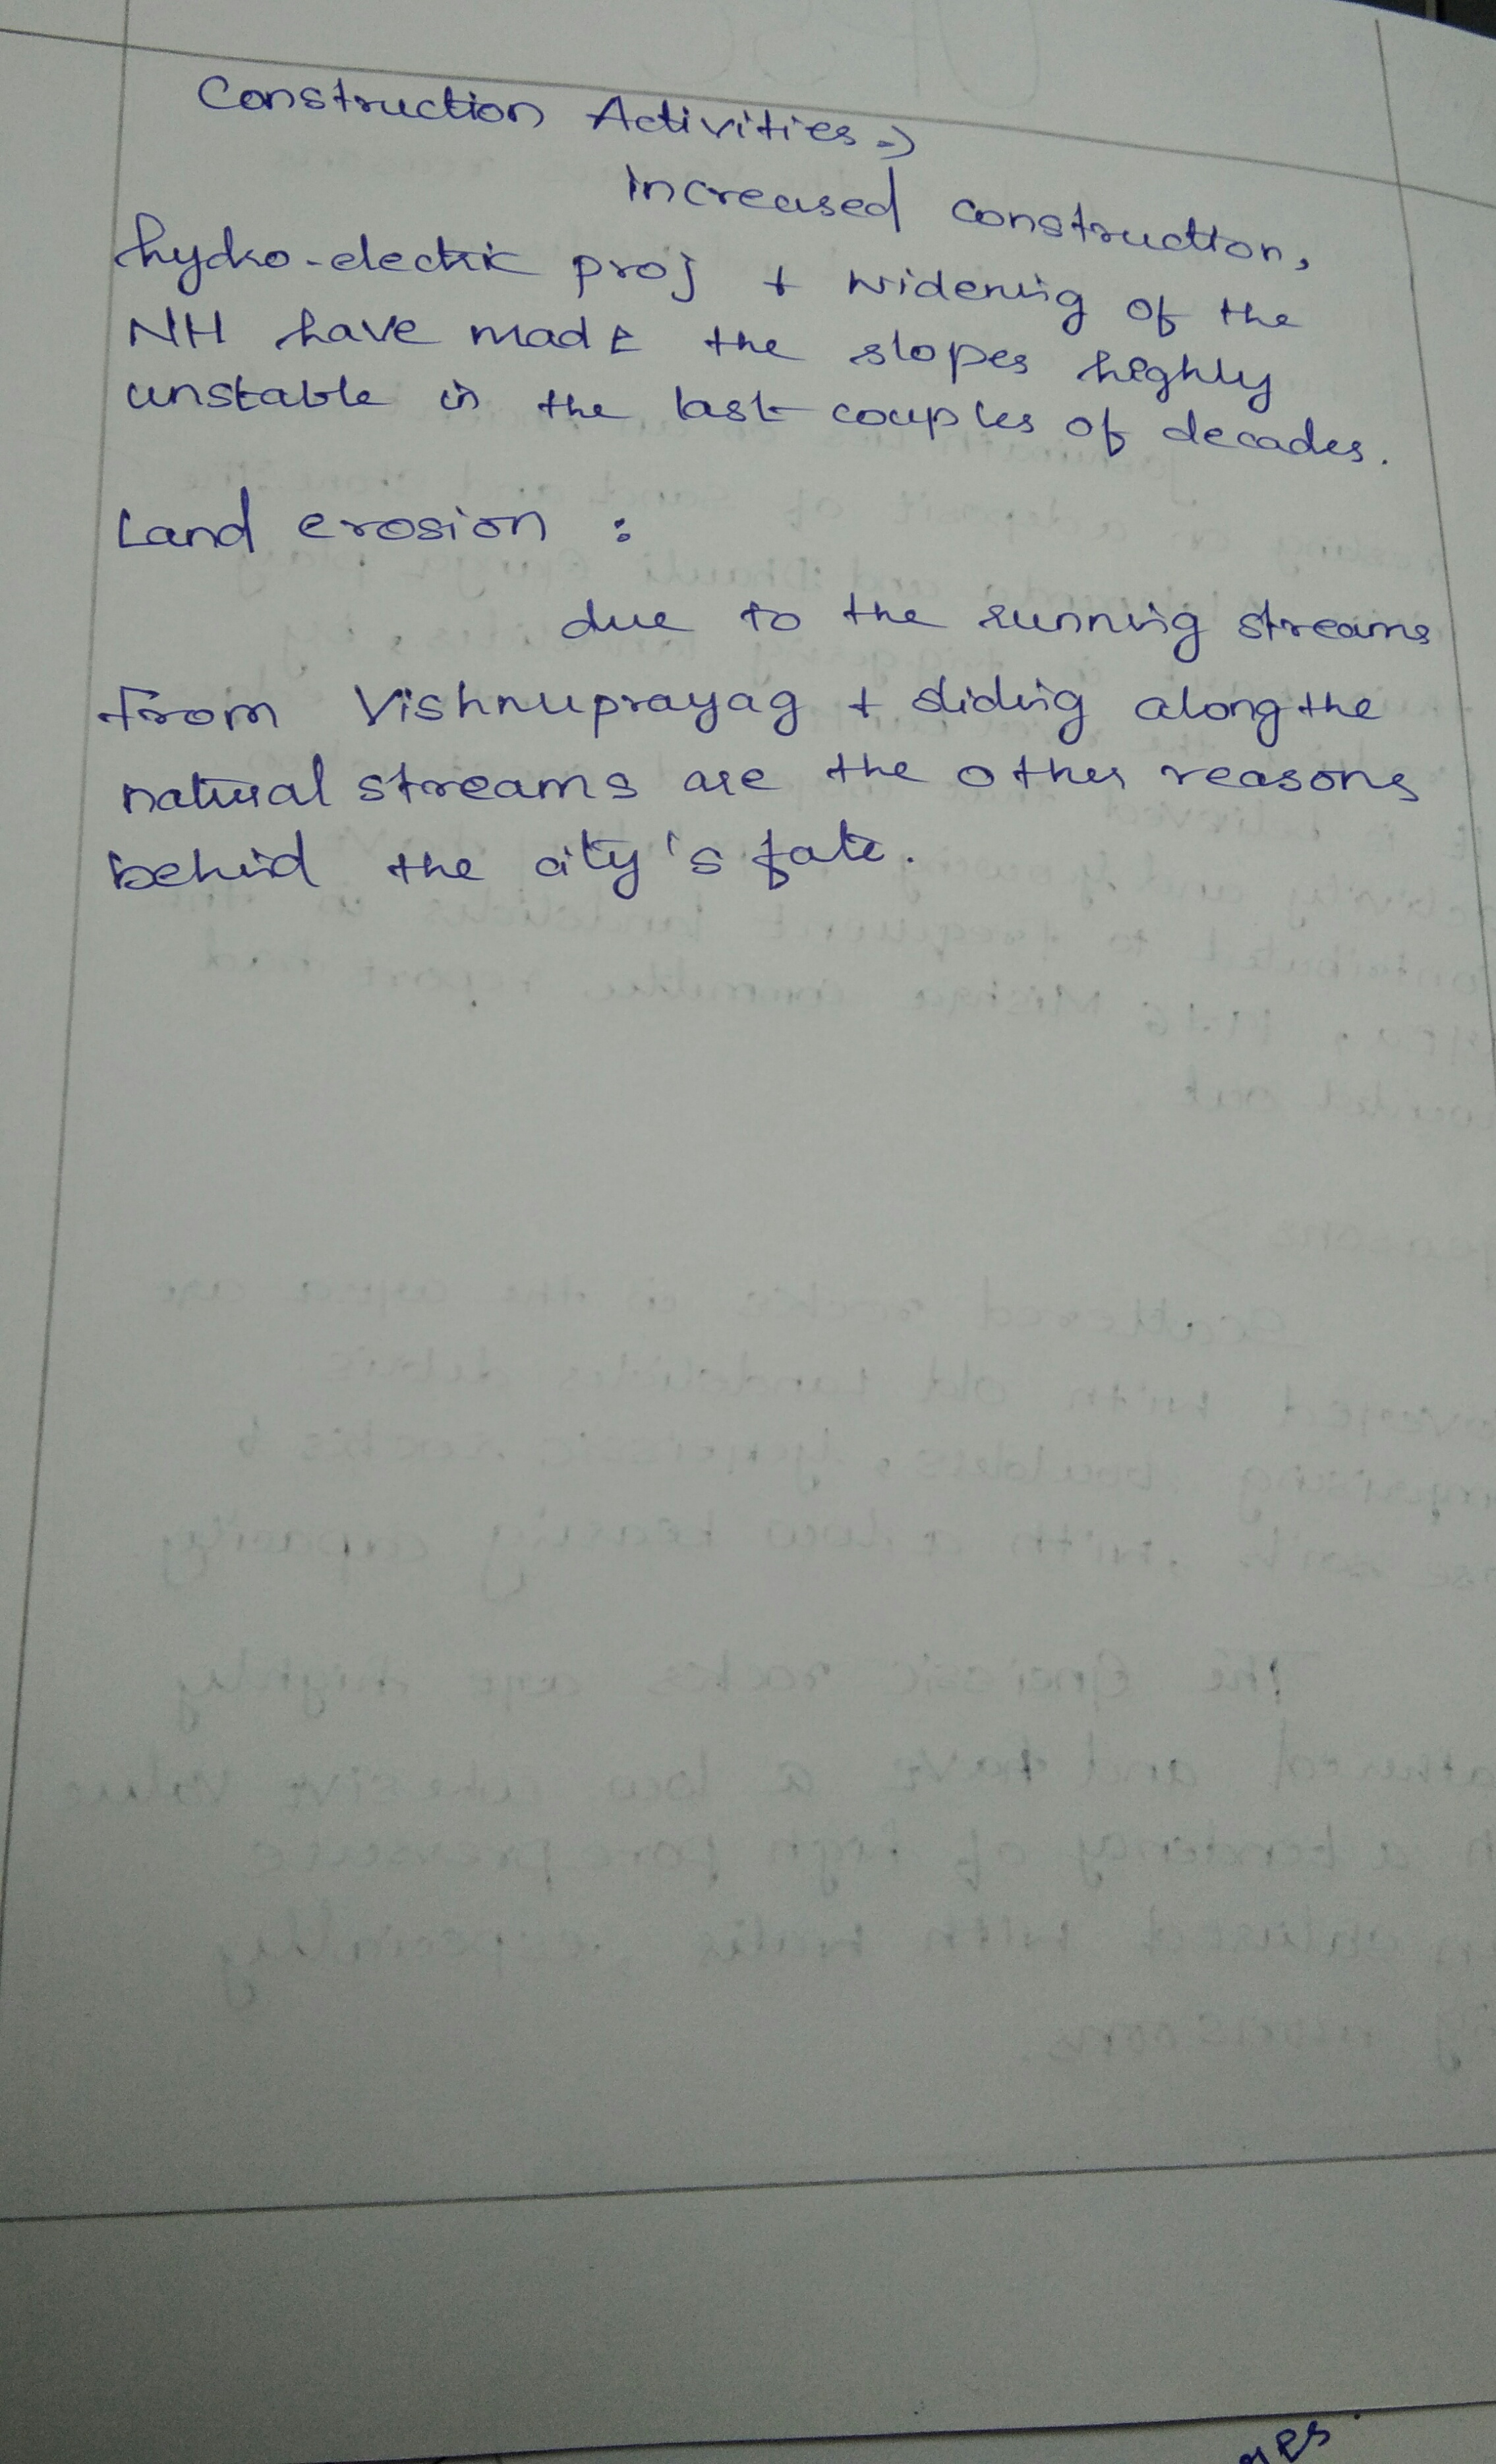 Construction Activities ⇒
Increased construction,
hydro-electric proj + widening of the
NH have made the slopes highly
unstable in the last couples of decades.
Land erosion :
due to the running streams
from Vishnuprayag + sliding along the
natural streams are the other reasons
behind the city's fate.